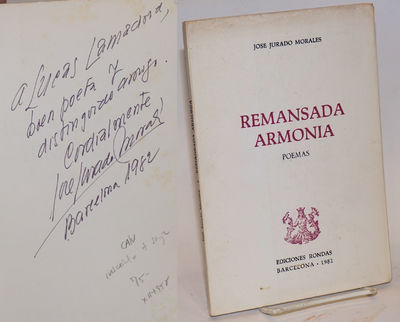 A Lucas Lamadrid,
buen poeta y
distinguido amigo.
Cordialmente
José Jurado Morales
Barcelona 1982
CAN
JOSE JURADO MORALES
REMANSADA
ARMONIA
POEMAS
EDICIONES RONDAS
BARCELONA - 1981